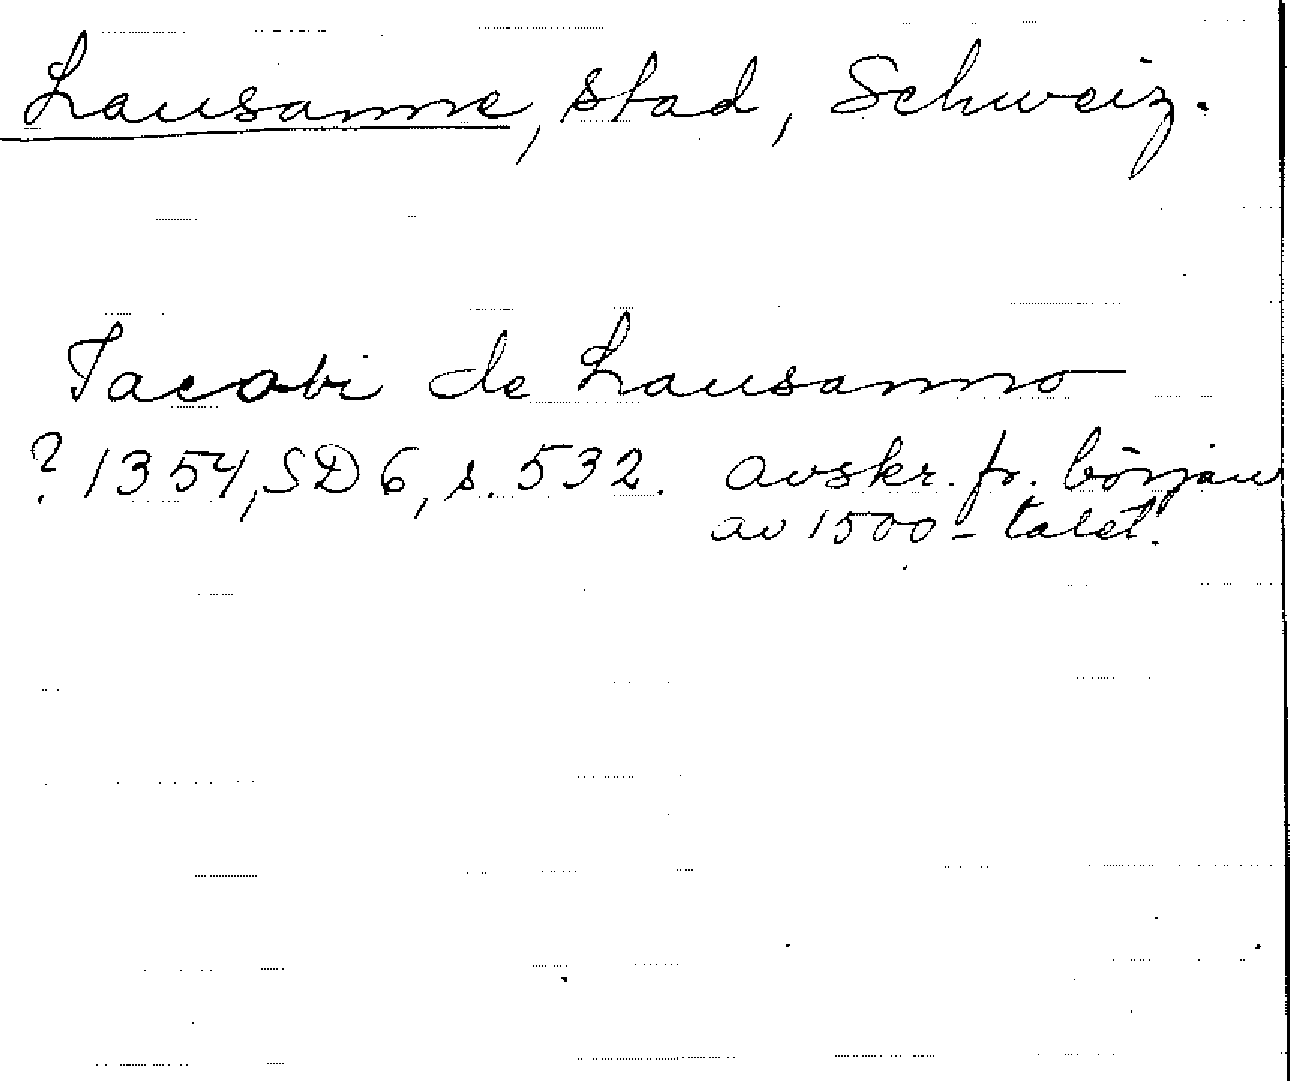 Lausanne, stad, Schweiz.
Jacobi de Lausanno
? 1354, SD 6, s. 532. avskr. fr. början
av 1500-talet.